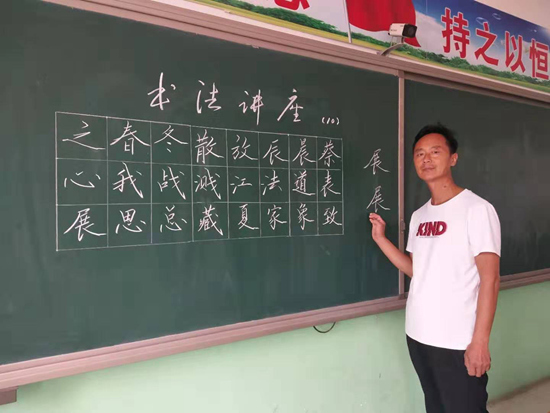 持之以恒
书法讲座(10)
之春冬散放辰晨蔡
心我战溅江法道表
展思总藏夏家象致
展
展
KIND